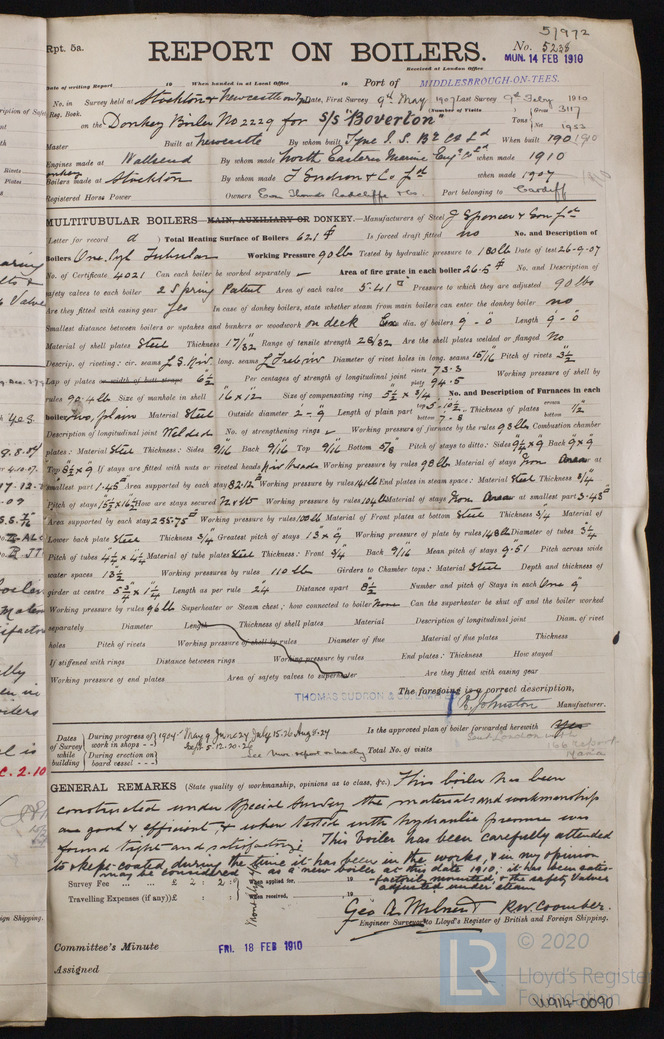 51972
Rpt. 5a.
REPORT ON BOILERS.
No. 5236
Received at London Office MUN. 14 FEB 1910
Date of writing Report 19 When handed in at Local Office 19 Port of MIDDLESBROUGH-ON-TEES.
No. in Survey held at Stockton & Newcastle on Tyne Date, First Survey 9th May 1907 Last Survey 9th Feby 1910
Reg. Book. (Number of Visits ) Gross 3117
on the Donkey Boiler No 2229 for S/S "Boverton" Tons Net 1953
Master Built at Newcastle By whom built Tyne I. S. Bg Co Ld When built 1910
Engines made at Wallsend By whom made North Eastern Marine Engg Co Ld when made 1910
Boilers made at Stockton By whom made T Sudron & Co Ld when made 1907
Registered Horse Power Owners Evan Thomas Radcliffe & Co. Port belonging to Cardiff
MULTITUBULAR BOILERS MAIN, AUXILIARY OR DONKEY.—Manufacturers of Steel J Spencer & Son Ld
Letter for record d ) Total Heating Surface of Boilers 621 Is forced draft fitted no No. and Description of
Boilers One Cyl Tubular Working Pressure 90 lb Tested by hydraulic pressure to 180 lb Date of test 26-9-07
No. of Certificate 4021 Can each boiler be worked separately Area of fire grate in each boiler 26.5 No. and Description of
safety valves to each boiler 2 Spring Patent Area of each valve 5.41 Pressure to which they are adjusted 90 lbs
Are they fitted with easing gear yes In case of donkey boilers, state whether steam from main boilers can enter the donkey boiler no
Smallest distance between boilers or uptakes and bunkers or woodwork on deck dia. of boilers 9'-0 Length 9'-0
Material of shell plates Steel Thickness 17/32 Range of tensile strength 28/32 Are the shell plates welded or flanged No
Descrip. of riveting: cir. seams long. seams Diameter of rivet holes in long. seams 15/16 Pitch of rivets 3½
Lap of plates or width of butt straps 6½ Per centages of strength of longitudinal joint rivets 73.3 plate 94.5 Working pressure of shell by
rules 90.4 lb Size of manhole in shell 16 x 12 Size of compensating ring 5½ x ¾ No. and Description of Furnaces in each
boiler two, plain Material Steel Outside diameter 2'-9 Length of plain part top 5-10½ bottom 7-8 Thickness of plates crown bottom ½
Description of longitudinal joint Welded No. of strengthening rings Working pressure of furnace by the rules 93 lb Combustion chamber
plates: Material Steel Thickness: Sides 9/16 Back 9/16 Top 9/16 Bottom 5/8 Pitch of stays to ditto: Sides 9¼ x 9 Back 9 x 9
Top 8½ x 9 If stays are fitted with nuts or riveted heads Working pressure by rules 98 lb Material of stays Iron Area at
smallest part 1.45 Area supported by each stay 82.12 Working pressure by rules 141 lb End plates in steam space: Material Steel Thickness ¾
Pitch of stays How are stays secured N & W Working pressure by rules 104 lb Material of stays Iron Area at smallest part 3.43
Area supported by each stay 255.75 Working pressure by rules 100 lb Material of Front plates at bottom Steel Thickness ¾ Material of
Lower back plate Steel Thickness ¾ Greatest pitch of stays 13 x 9 Working pressure of plate by rules 148 lb Diameter of tubes 3¼
Pitch of tubes 4½ x 4½ Material of tube plates Steel Thickness: Front ¾ Back 9/16 Mean pitch of stays 9.51 Pitch across wide
water spaces 13½ Working pressures by rules 110 lb Girders to Chamber tops: Material Steel Depth and thickness of
girder at centre 5¾ x 1¼ Length as per rule 24 Distance apart 8½ Number and pitch of Stays in each One 9
Working pressure by rules 96 lb Superheater or Steam chest; how connected to boiler None Can the superheater be shut off and the boiler worked
separately Diameter Length Thickness of shell plates Material Description of longitudinal joint Diam. of rivet
holes Pitch of rivets Working pressure of shell by rules Diameter of flue Material of flue plates Thickness
If stiffened with rings Distance between rings Working pressure by rules End plates: Thickness How stayed
Working pressure of end plates Area of safety valves to superheater Are they fitted with easing gear
The foregoing is a correct description,
THOMAS SUDRON & CO. R. Johnston Manufacturer.
Dates of Survey while building During progress of work in shops - - 1907 May 9 June 24 July 15.26 Aug 8.27 Sept 5.12.20.26 Is the approved plan of boiler forwarded herewith Yes
During erection on board vessel - - - See Nwc report on machy Total No. of visits
GENERAL REMARKS (State quality of workmanship, opinions as to class, &c.) This boiler has been
constructed under Special Survey the materials and workmanship
are good & efficient, & when tested with hydraulic pressure was
found tight and satisfactory. This boiler has been carefully attended
to & kept coated during the time it has been in the works, & in my opinion
may be considered as a new boiler at this date 1910; it has been satis-
factorily mounted, & the safety valves
adjusted under steam
Survey Fee ... ... £ 2 : 2 : When applied for, 19
Travelling Expenses (if any) £ : : When received, 19
Geo A Milner & R W Coomber.
Engineer Surveyor to Lloyd's Register of British and Foreign Shipping.
Committee's Minute FRI. 18 FEB 1910
Assigned
© 2020
LR
Lloyd's Register
Foundation
W914-0090